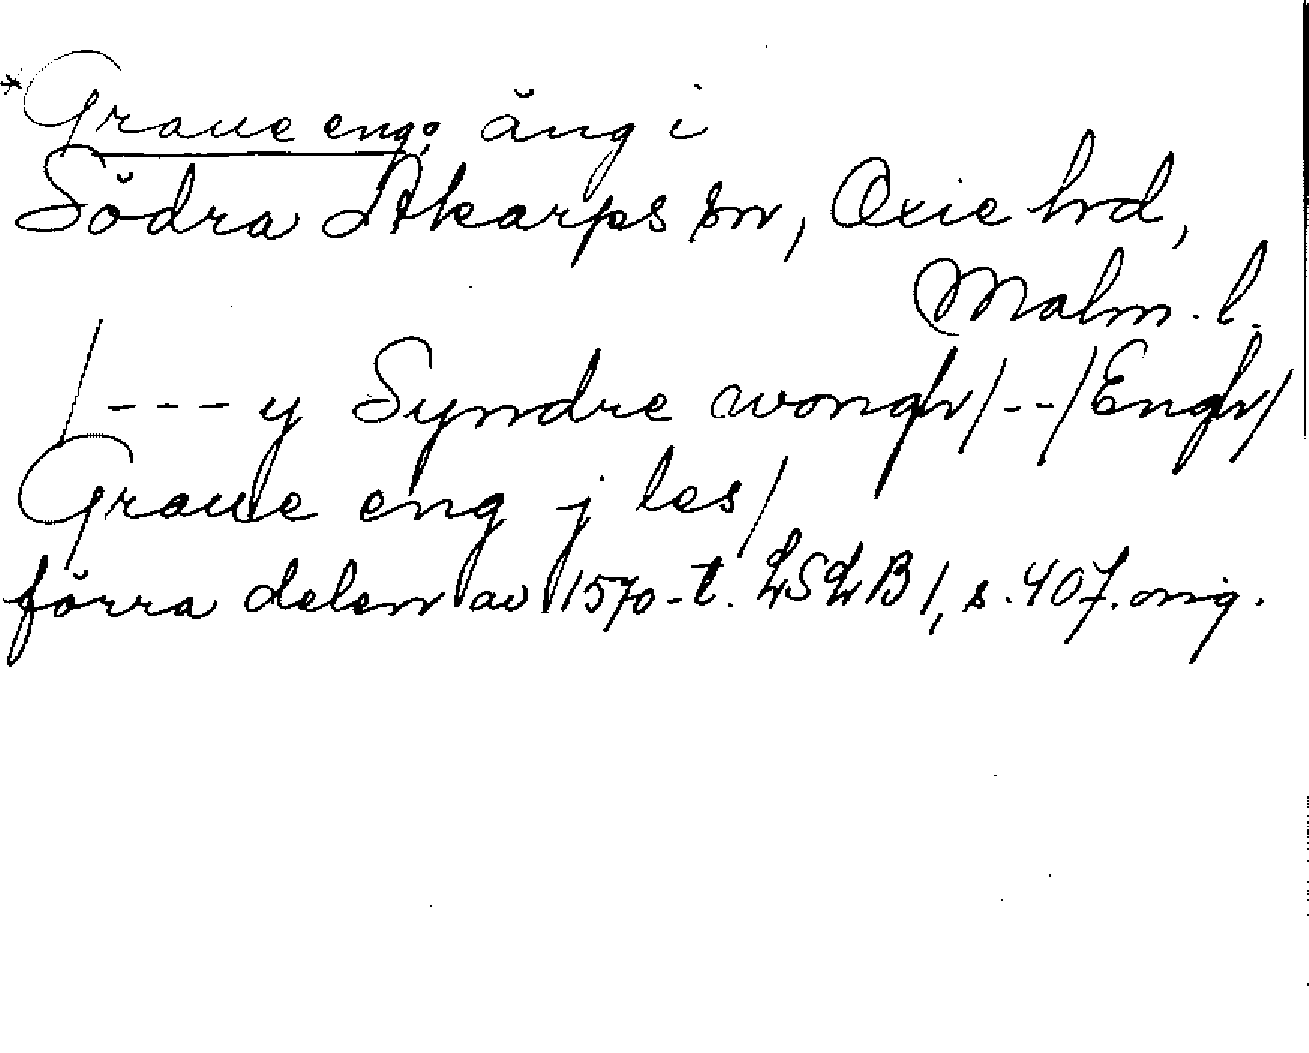 *Graue eng: äng i
Södra Åkarps sn, Oxie hrd,
Malm. l.
/---y Syndre wongh/--/Engh/
Graue eng j les/
förra delen av 1570-t. LSLB 1, s. 407. orig.